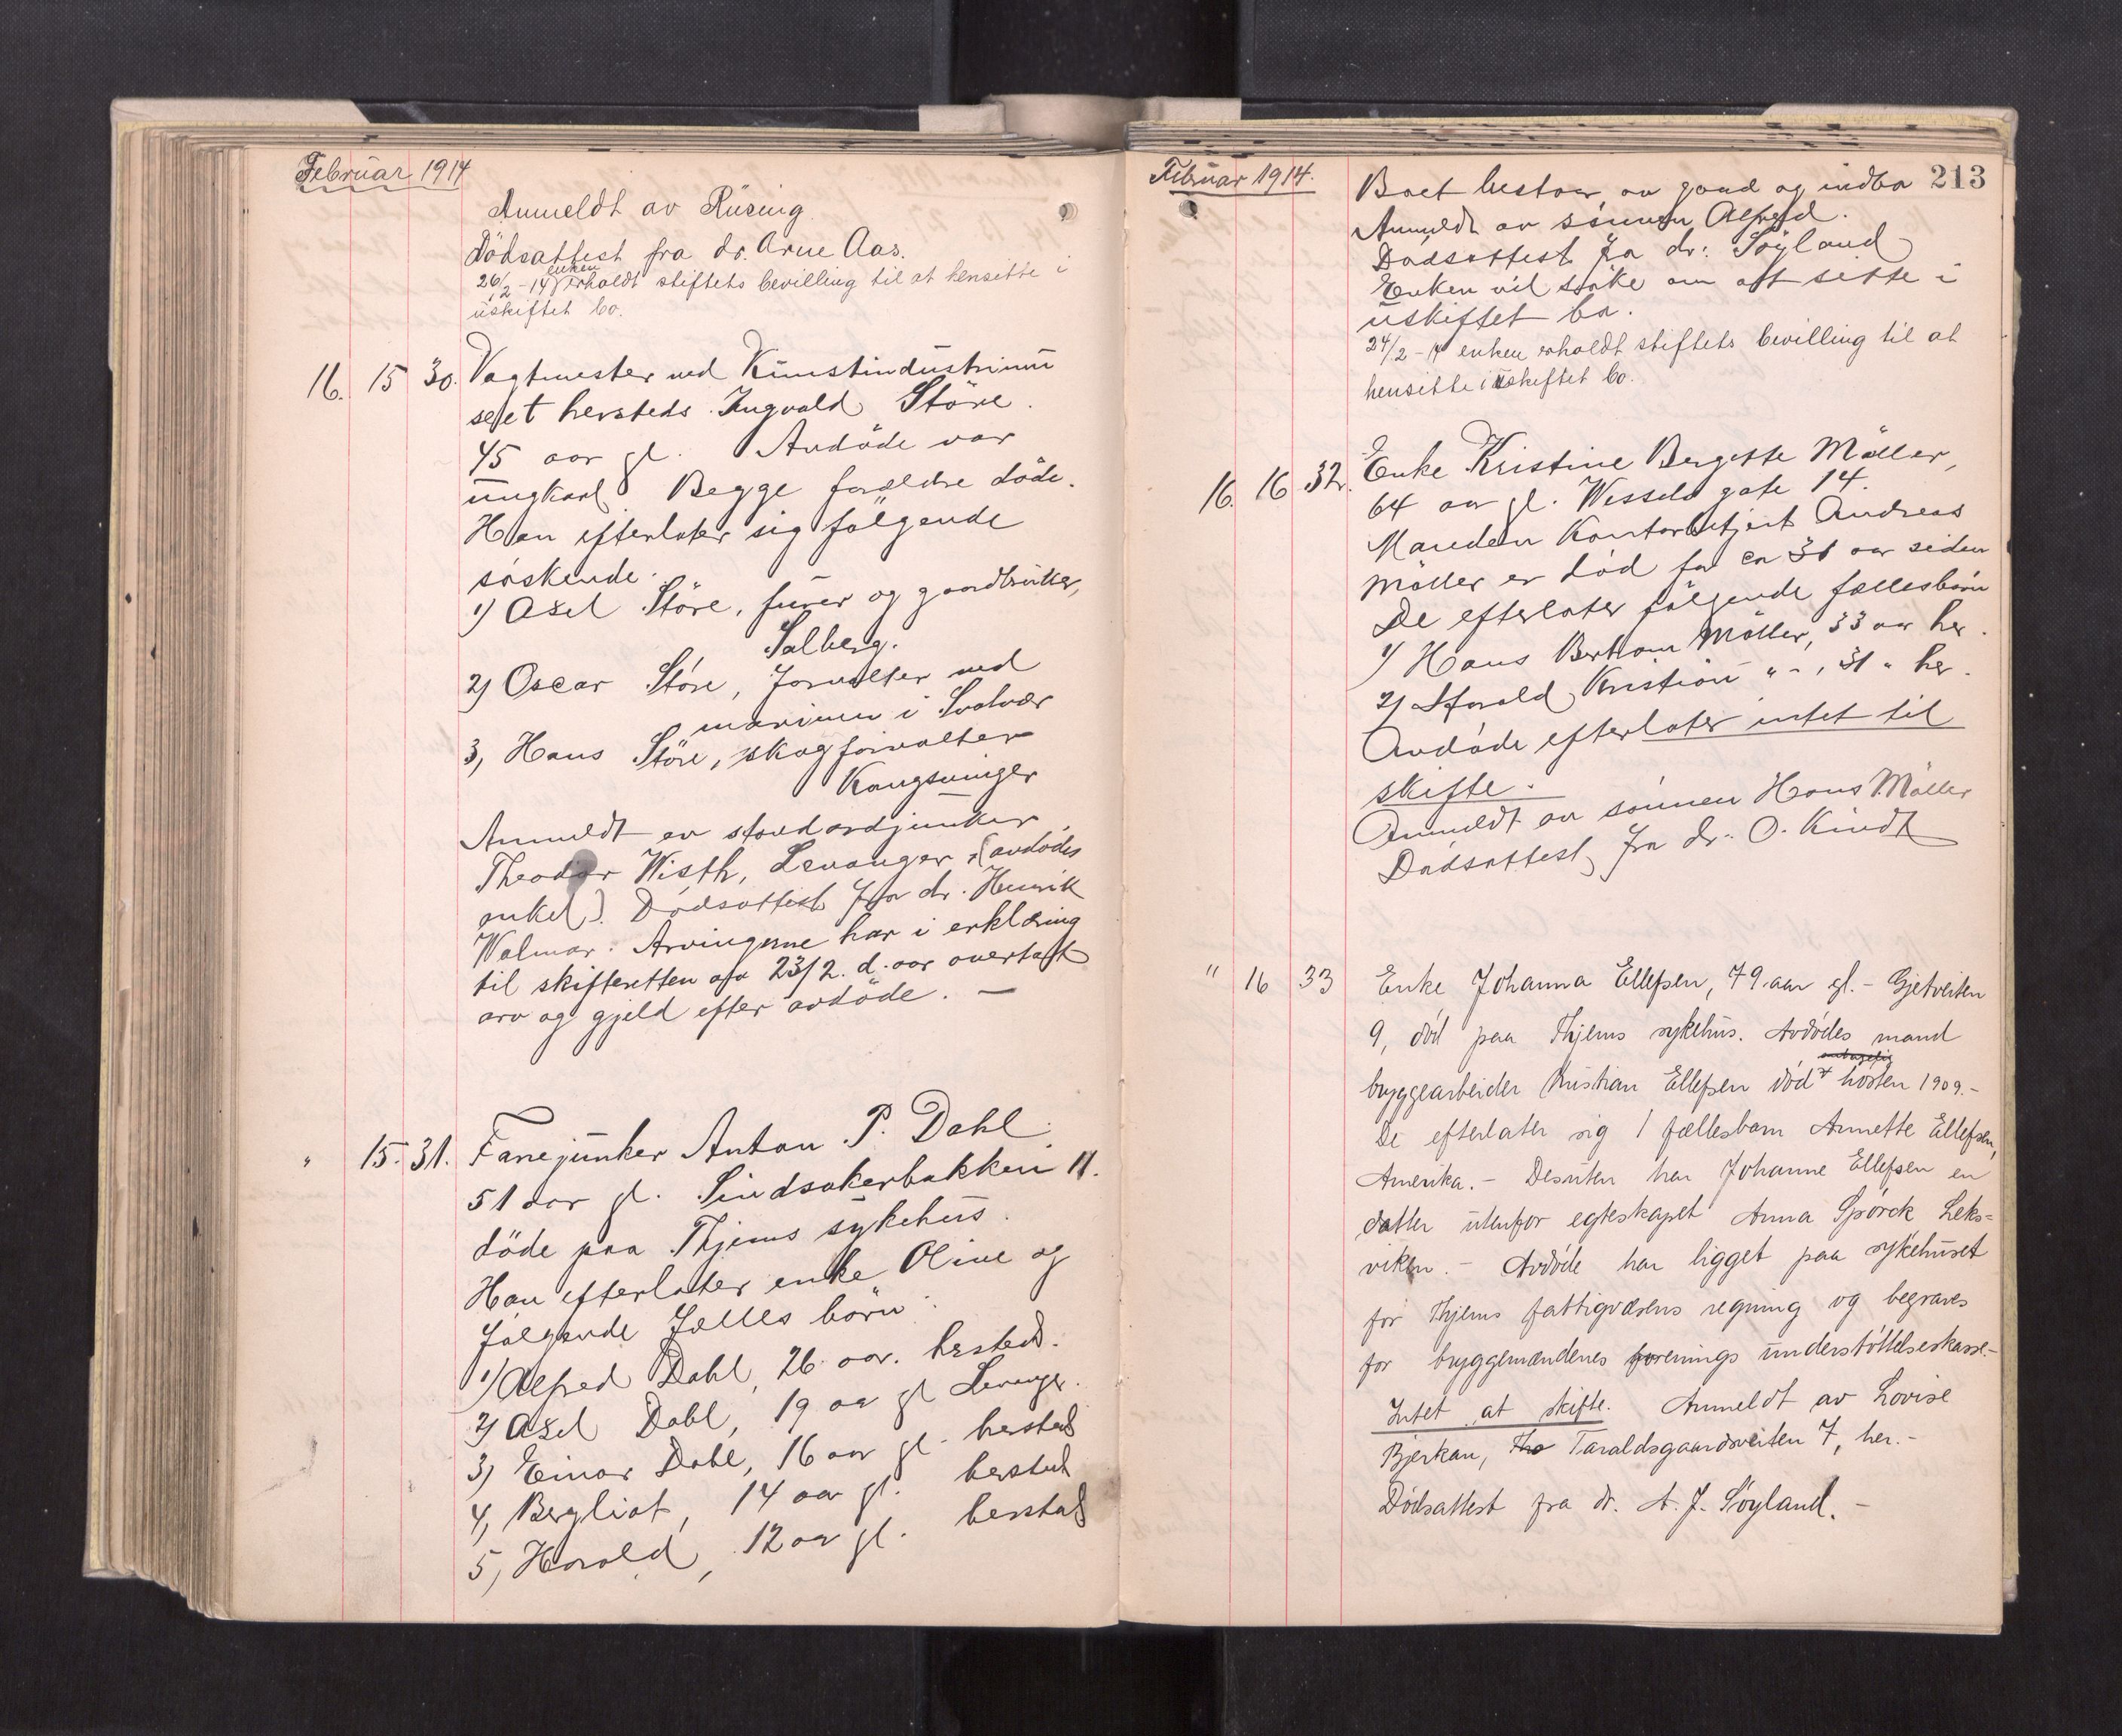 Februar 1914
Anmeldt av Rüsing
Dödsattest fra dr. Arne Aas.
enken
26/2 - 14 erholdt stiftets bevilling til at hensitte i
uskiftet bo.
16. 15 30. Vagtmester ved Kunstindustrimu
seet hersteds Ingvald Störe.
45 aar gl. Avdöde var
ungkarl Begge forældre döde.
Han efterlater sig fölgende
söskende.
1) Axel Störe, furer og gaardbruker,
Salberg.
2) Oscar Störe, forvalter ved
marinen i Svolvær
3, Hans Störe, skogforvalter
Kongsvinger
Anmeldt av standardjunker
Theodor Wisth, Levanger (avdödes
onkel). Dödsattest fra dr. Henrik
Walmar. Arvingerne har i erklæring
til skifteretten av 23/2. d. aar overtat
arv og gjeld efter avdöde. —
" 15. 31. Fanejunker Anton P. Dahl
51 aar gl. Sindsakerbakken 11.
döde paa Thjems sykehus.
Han efterlater enke Oline og
følgende fælles börn:
1) Alfred Dahl, 26 aar. hersteds.
2) Axel Dahl, 19 aar gl Levanger.
3) Einar Dahl, 16 aar gl. hersteds
4, Bergliot, 14 aar gl. hersteds
5, Harald, 12 aar gl. hersteds
Februar 1914.
213
Boet bestaar av gaard og indbo
Anmeldt av sönnen Alfred.
Dødsattest fra dr. Söyland
Enken vil söke om att sitte i
uskiftet bo.
24/2 - 14 enken erholdt stiftets bevilling til at
hensitte i uskiftet bo.
16. 16 32. Enke Kristine Bergitte Möller,
64 aar gl. Wessels gate 14.
Manden Kontorbetjent Andreas
Möller er död for ca 31 aar siden
De efterlater fölgende fællesbörn
1) Hans Bertram Möller, 33 aar her.
2) Harald Kristian " - , 31 " her.
Avdöde efterlater intet til
skifte.
Anmeldt av sönnen Hans Möller
Dödsattest fra dr. O. Kindt
" 16 33 Enke Johanna Ellefsen, 79 aar gl. - Gjetveiten
9, död paa Thjems sykehus. Avdödes mand
bryggearbeider Kristian Ellefsen död høsten 1909. -
De efterlater sig 1 fællesbarn Annette Ellefsen,
Amerika. - Desuten har Johanne Ellefsen en
datter utenfor egteskapet Anna Spörck Leks=
viken. - Avdöde har ligget paa sykehuset
for Thjems fattigvæsens regning og begraves
for bryggemændenes forenings understöttelseskasse. -
Intet at skifte. Anmeldt av Lovise
Bjerkan, Tho Taraldsgaardsveiten 7, her. -
Dödsattest fra dr. A. J. Söyland. -